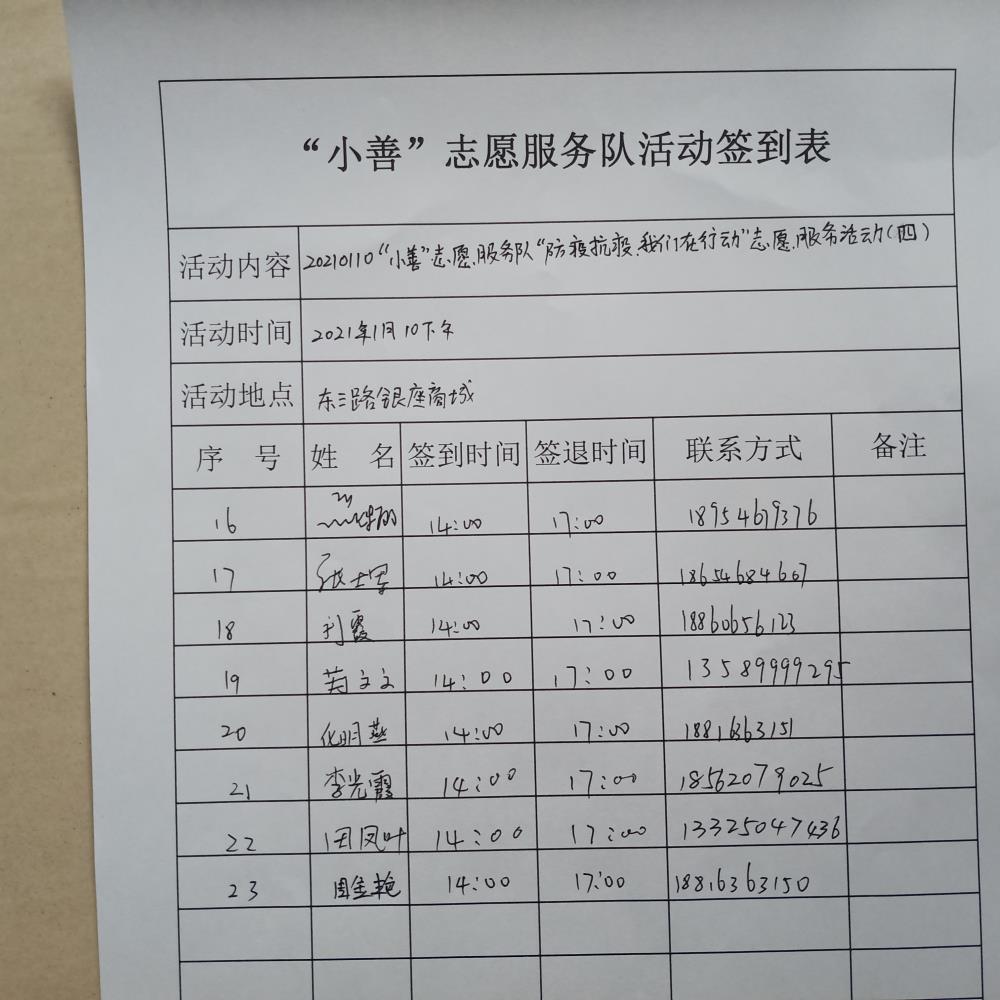 “小善”志愿服务队活动签到表
活动内容 20210110“小善”志愿服务队“防疫抗疫、我们在行动”志愿服务活动(四)
活动时间 2021年1月10下午
活动地点 东三路银座商城
序 号 姓 名 签到时间 签退时间 联系方式 备注
16 14:00 17:00 18954679376
17 14:00 17:00 18654684607
18 14:00 17:00 18860656123
19 文文 14:00 17:00 13589999295
20 化明燕 14:00 17:00
21 李光霞 14:00 17:00 18562079025
22 田凤叶 14:00 17:00 13325047436
23 周金艳 14:00 17:00 18816363150